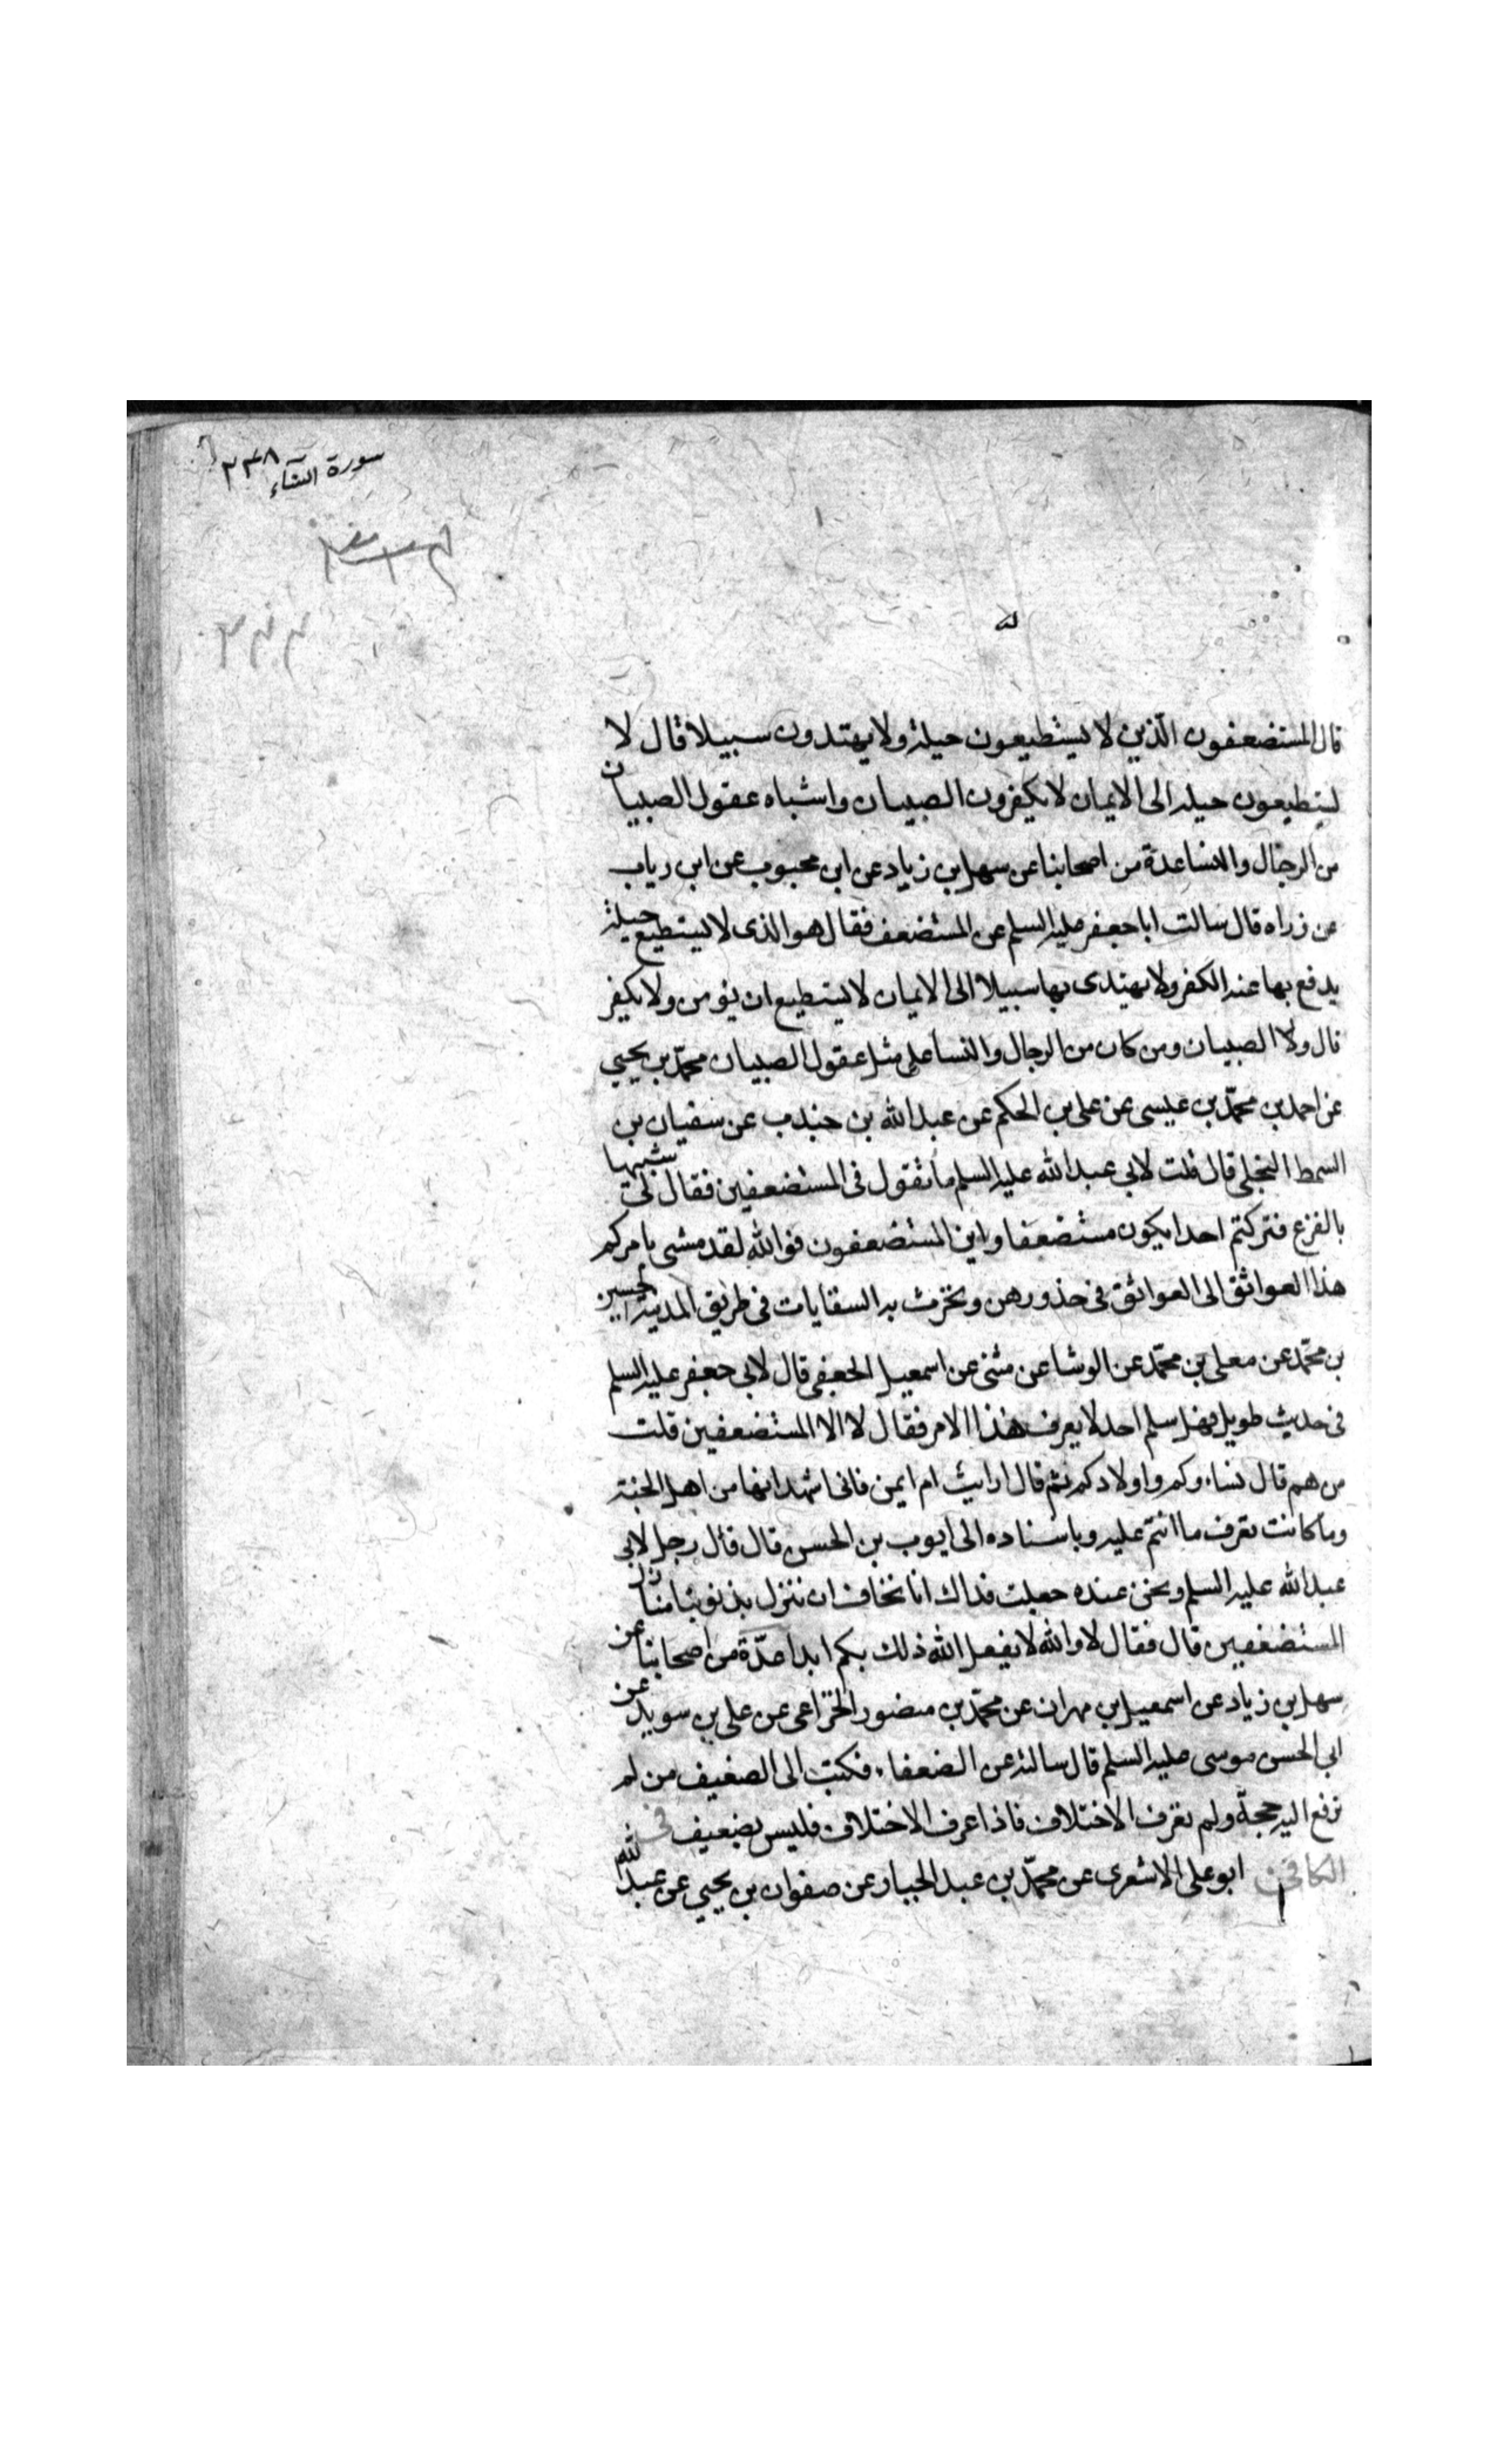 سورة النساء ٢٣٨
قال المستضعفون الّذين لا يستطيعون حيلة ولا يهتدون سبيلا قال لا
يستطيعون حيلة الى الايمان لا يكفرون الصبيان واشباه عقول الصبيان
من الرجال والنسا عدة من اصحابنا عن سهل بن زياد عن ابن محبوب عن ابن رياب
عن زراه قال سالت ابا جعفر عليه السلم عن المستضعف فقال هو الذى لا يستطيع حيلة
يدفع بها عنه الكفر ولا يهتدى بها سبيلا الى الايمان لا يستطيع ان يؤمن ولا يكفر
قال ولا الصبيان ومن كان من الرجال والنسا على مثل عقول الصبيان محمّد بن يحيى
عن احمد بن محمّد بن عيسى عن على بن الحكم عن عبد الله بن جندب عن سفيان بن
السمط البجلى قال قلت لابى عبد الله عليه السلم ما تقول فى المستضعفين فقال لى شبيها
بالفزع فتركتم احدا يكون مستضعفا واين المستضعفون فوالله لقد مشى بامركم
هذا العواتق الى العواتق فى خذورهن وتخرث به السقايات فى طريق المدينة الحسين
بن محمّد عن معلى بن محمّد عن الوشا عن مثنى عن اسمعيل الجعفى قال لابى جعفر عليه السلم
فى حديث طويل فهل سلم احد لا يعرف هذا الامر فقال لا الا المستضعفين قلت
من هم قال نساءوكم واولادكم ثم قال ارايت ام ايمن فانى اشهد انها من اهل الجنة
وما كانت تعرف ما انتم عليه وباسناده الى ايوب بن الحسن قال قال رجل لابى
عبد الله عليه السلم ونحن عنده جعلت فداك انا نخاف ان ننزل بذنوبنا منازل
المستضعفين قال فقال لا والله لا يفعل الله ذلك بكم ابدا عدّة من اصحابنا عن
سهل بن زياد عن اسمعيل بن مهران عن محمّد بن منصور الخزاعى عن على بن سويد عن
ابى الحسن موسى عليه السلم قال سالته عن الضعفاء فكتب الى الضعيف من لم
ترفع اليه حجة ولم يعرف الاختلاف فاذا عرف الاختلاف فليس بضعيف فى
الكافى ابو على الاشعرى عن محمّد بن عبد الجبار عن صفوان بن يحيى عن عبد الله